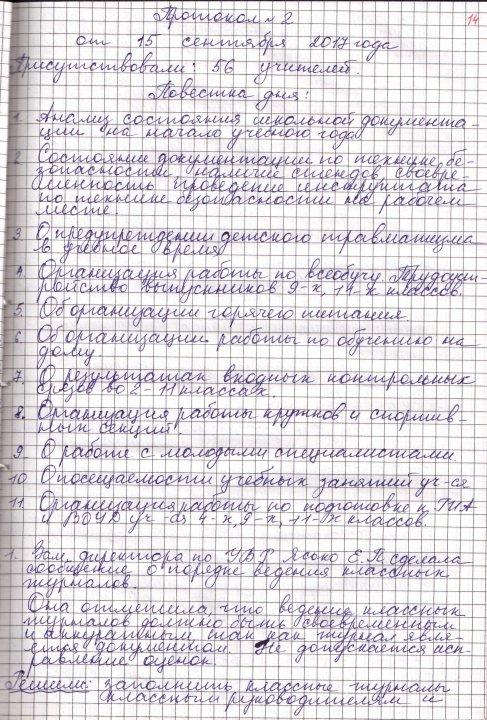 14
Протокол № 2
от 15 сентября 2017 года
Присутствовали: 56 учителей.
Повестка дня:
1. Анализ состояния школьной документа-
ции на начало учебного года
2. Состояние документации по технике бе-
зопасности, наличие стендов, своевре-
менность проведение инструктажа
по технике безопасности на рабочем
месте.
3. О предупреждении детского травматизма
в учебное время
4. Организация работы по всеобучу. Трудоуст-
ройство выпускников 9-х, 11-х классов.
5. Об организации горячего питания.
6. Об организации работы по обучению на
дому
7. О результатах входных контрольных
срезов во 2-11 классах.
8. Организация работы кружков и спортив-
ных секций.
9. О работе с молодыми специалистами
10. О посещаемости учебных занятий уч-ся
11. Организация работы по подготовке к ГИА
и уч-ся 4-х, 9-х, 11-х классов.
1. Зам. директора по УВР Е.П. сделала
сообщение о порядке ведения классных
журналов.
Она отметила, что ведение классных
журналов должно быть своевременным
и аккуратным, так как журнал явля-
ется документом. Не допускается исп-
равление оценок.
Решили: заполнить классные журналы
классным руководителям и